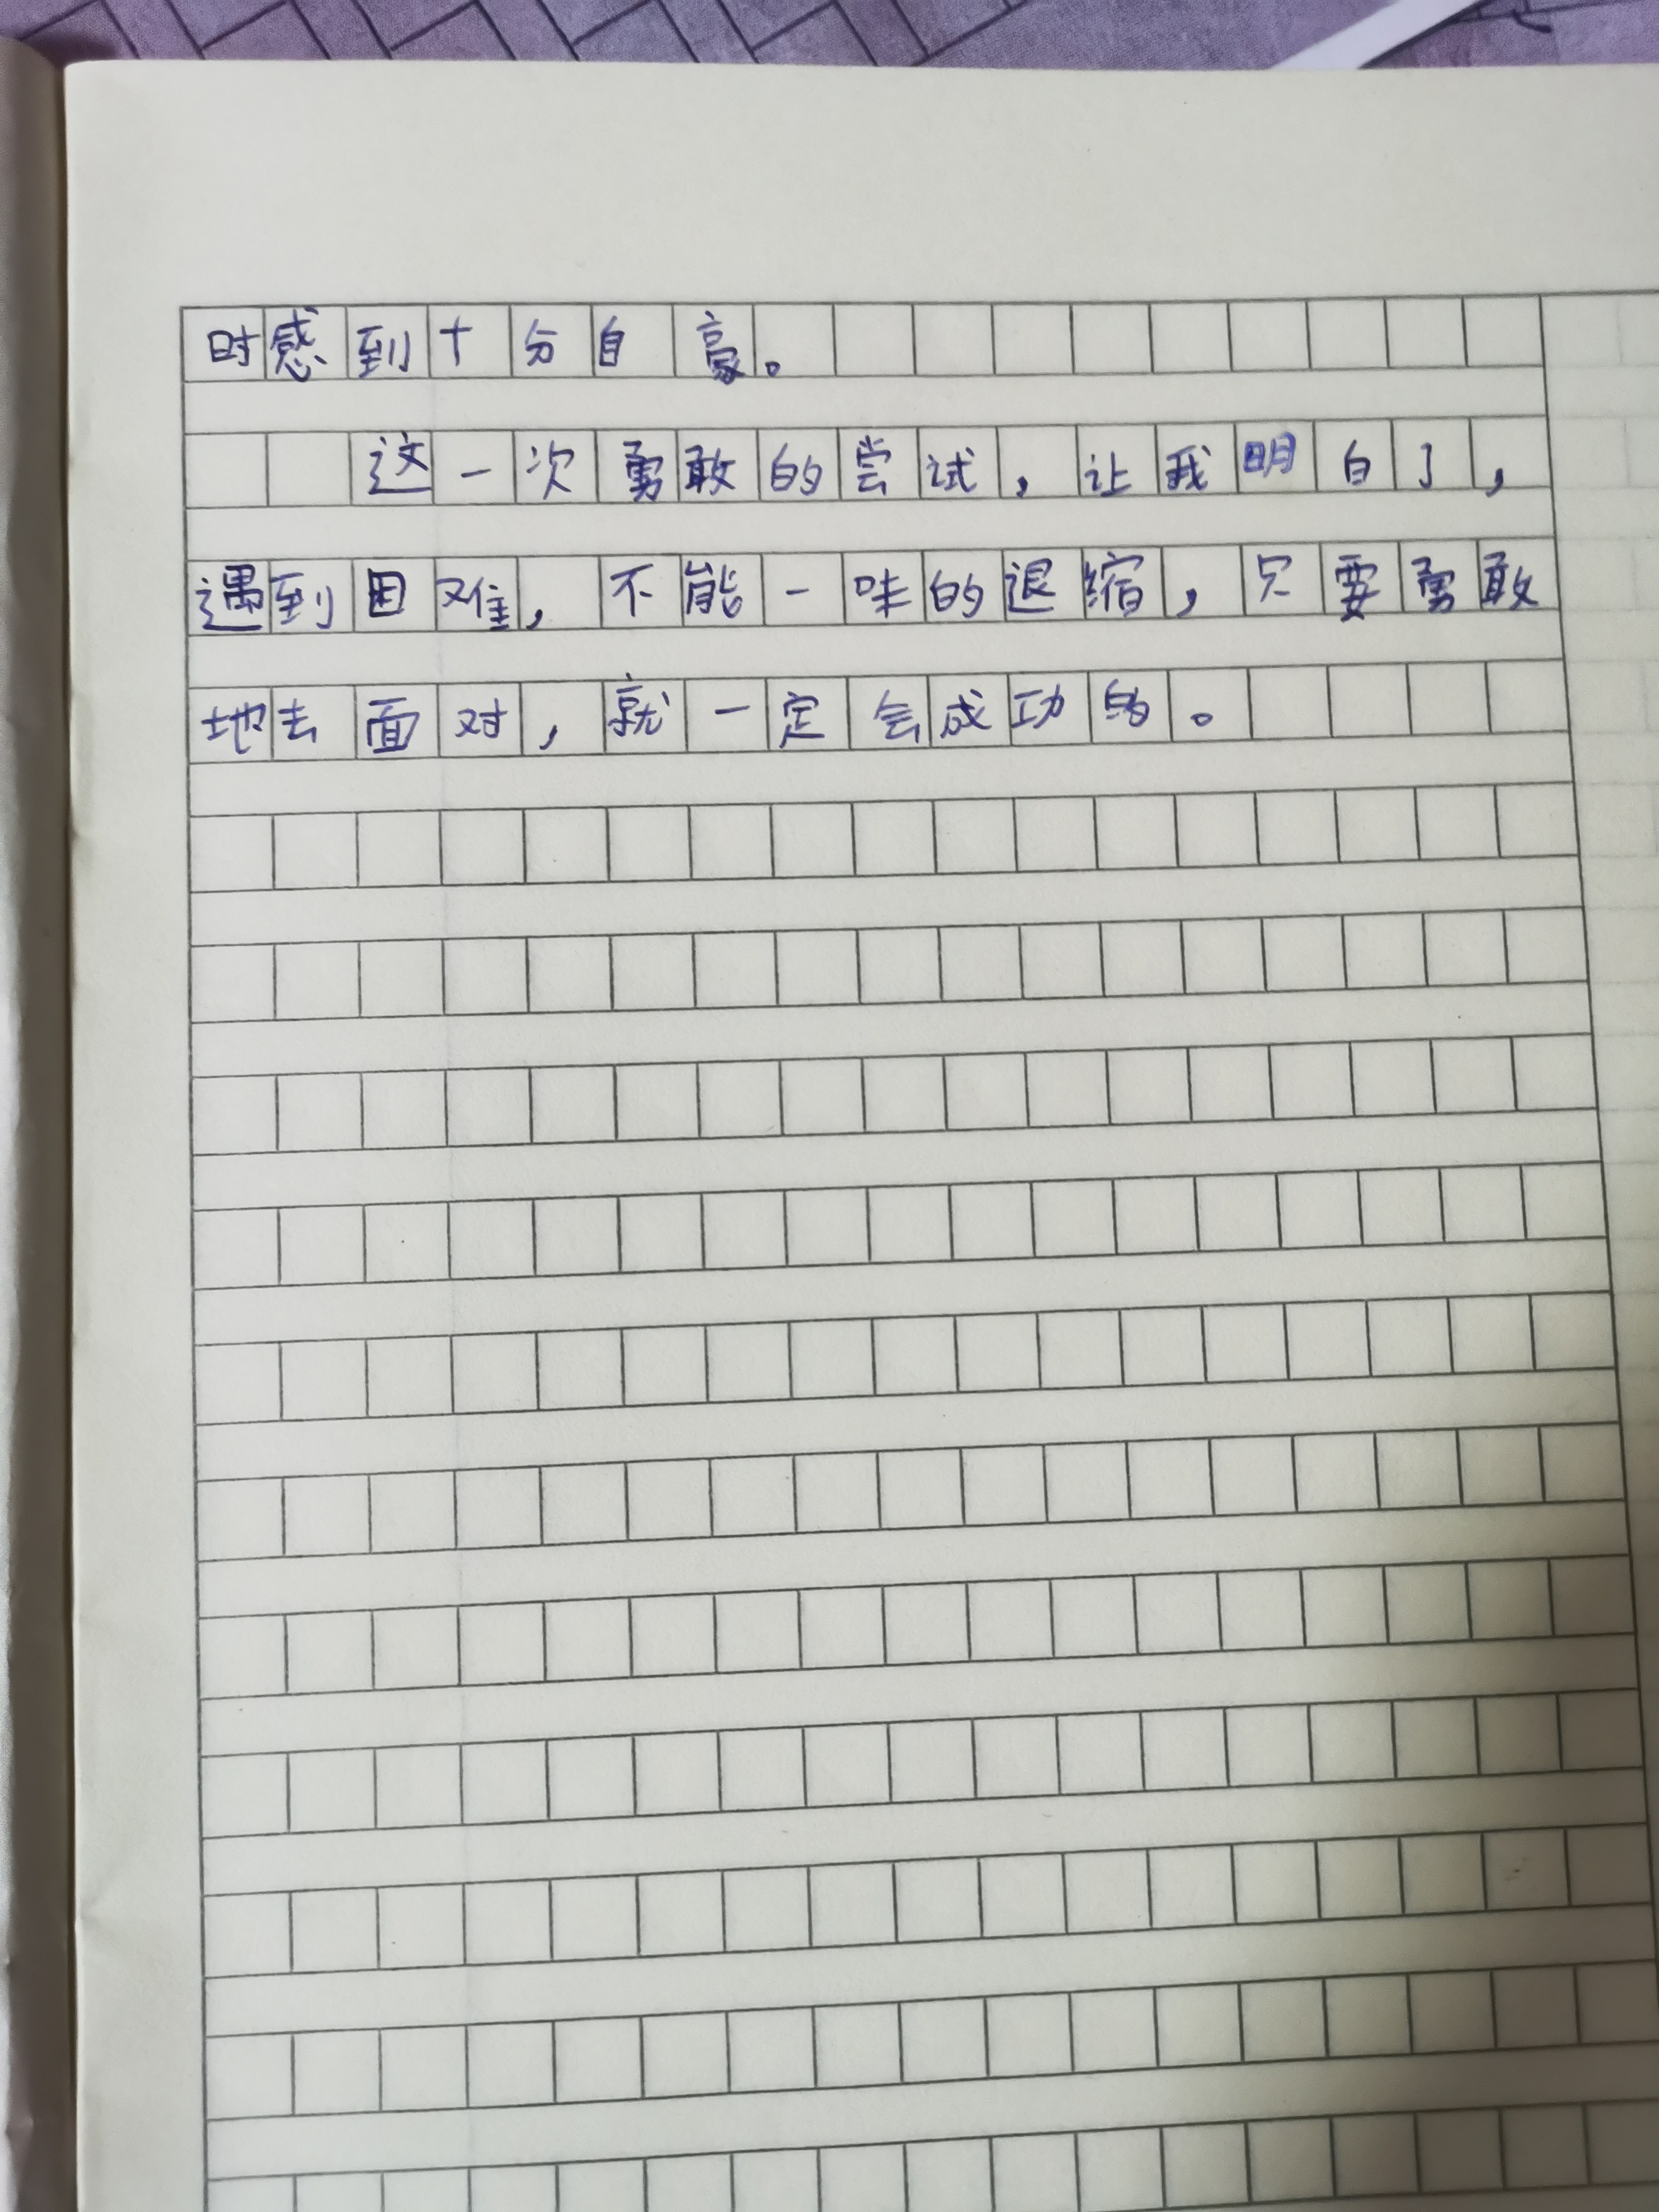 时感到十分自豪。
这一次勇敢的尝试，让我明白了，
遇到困难，不能一味的退缩，只要勇敢
地去面对，就一定会成功的。